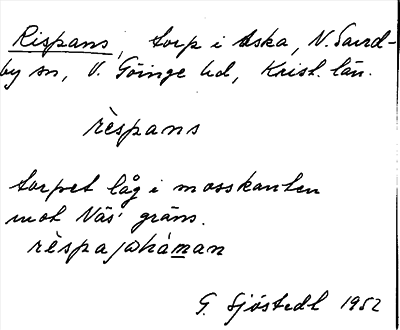 Rispans, torp i Aska, N. Sand-
by sn, V. Göinge hd, Krist. län.
rèspans
torpet låg i mosskanten
mot Näs' gräns.
rèspa johàman
G. Sjöstedt 1952